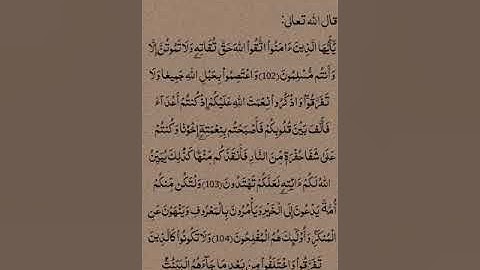 قال الله تعالى:
يَٰٓأَيُّهَا الَّذِينَ ءَامَنُوا اتَّقُوا اللهَ حَقَّ تُقَاتِهِۦ وَلَا تَمُوتُنَّ إِلَّا
وَأَنتُم مُّسْلِمُونَ (102) وَاعْتَصِمُوا بِحَبْلِ اللهِ جَمِيعًا وَلَا
تَفَرَّقُوا وَاذْكُرُوا نِعْمَتَ اللهِ عَلَيْكُمْ إِذْ كُنتُمْ أَعْدَآءً
فَأَلَّفَ بَيْنَ قُلُوبِكُمْ فَأَصْبَحْتُم بِنِعْمَتِهِۦٓ إِخْوَٰنًا وَكُنتُمْ
عَلَىٰ شَفَا حُفْرَةٍ مِّنَ النَّارِ فَأَنقَذَكُم مِّنْهَا كَذَٰلِكَ يُبَيِّنُ
اللهُ لَكُمْ ءَايَٰتِهِۦ لَعَلَّكُمْ تَهْتَدُونَ (103) وَلْتَكُن مِّنكُمْ
أُمَّةٌ يَدْعُونَ إِلَى الْخَيْرِ وَيَأْمُرُونَ بِالْمَعْرُوفِ وَيَنْهَوْنَ عَنِ
الْمُنكَرِ وَأُولَٰٓئِكَ هُمُ الْمُفْلِحُونَ (104) وَلَا تَكُونُوا كَالَّذِينَ
تَفَرَّقُوا وَاخْتَلَفُوا مِن بَعْدِ مَا جَآءَهُمُ الْبَيِّنَٰتُ